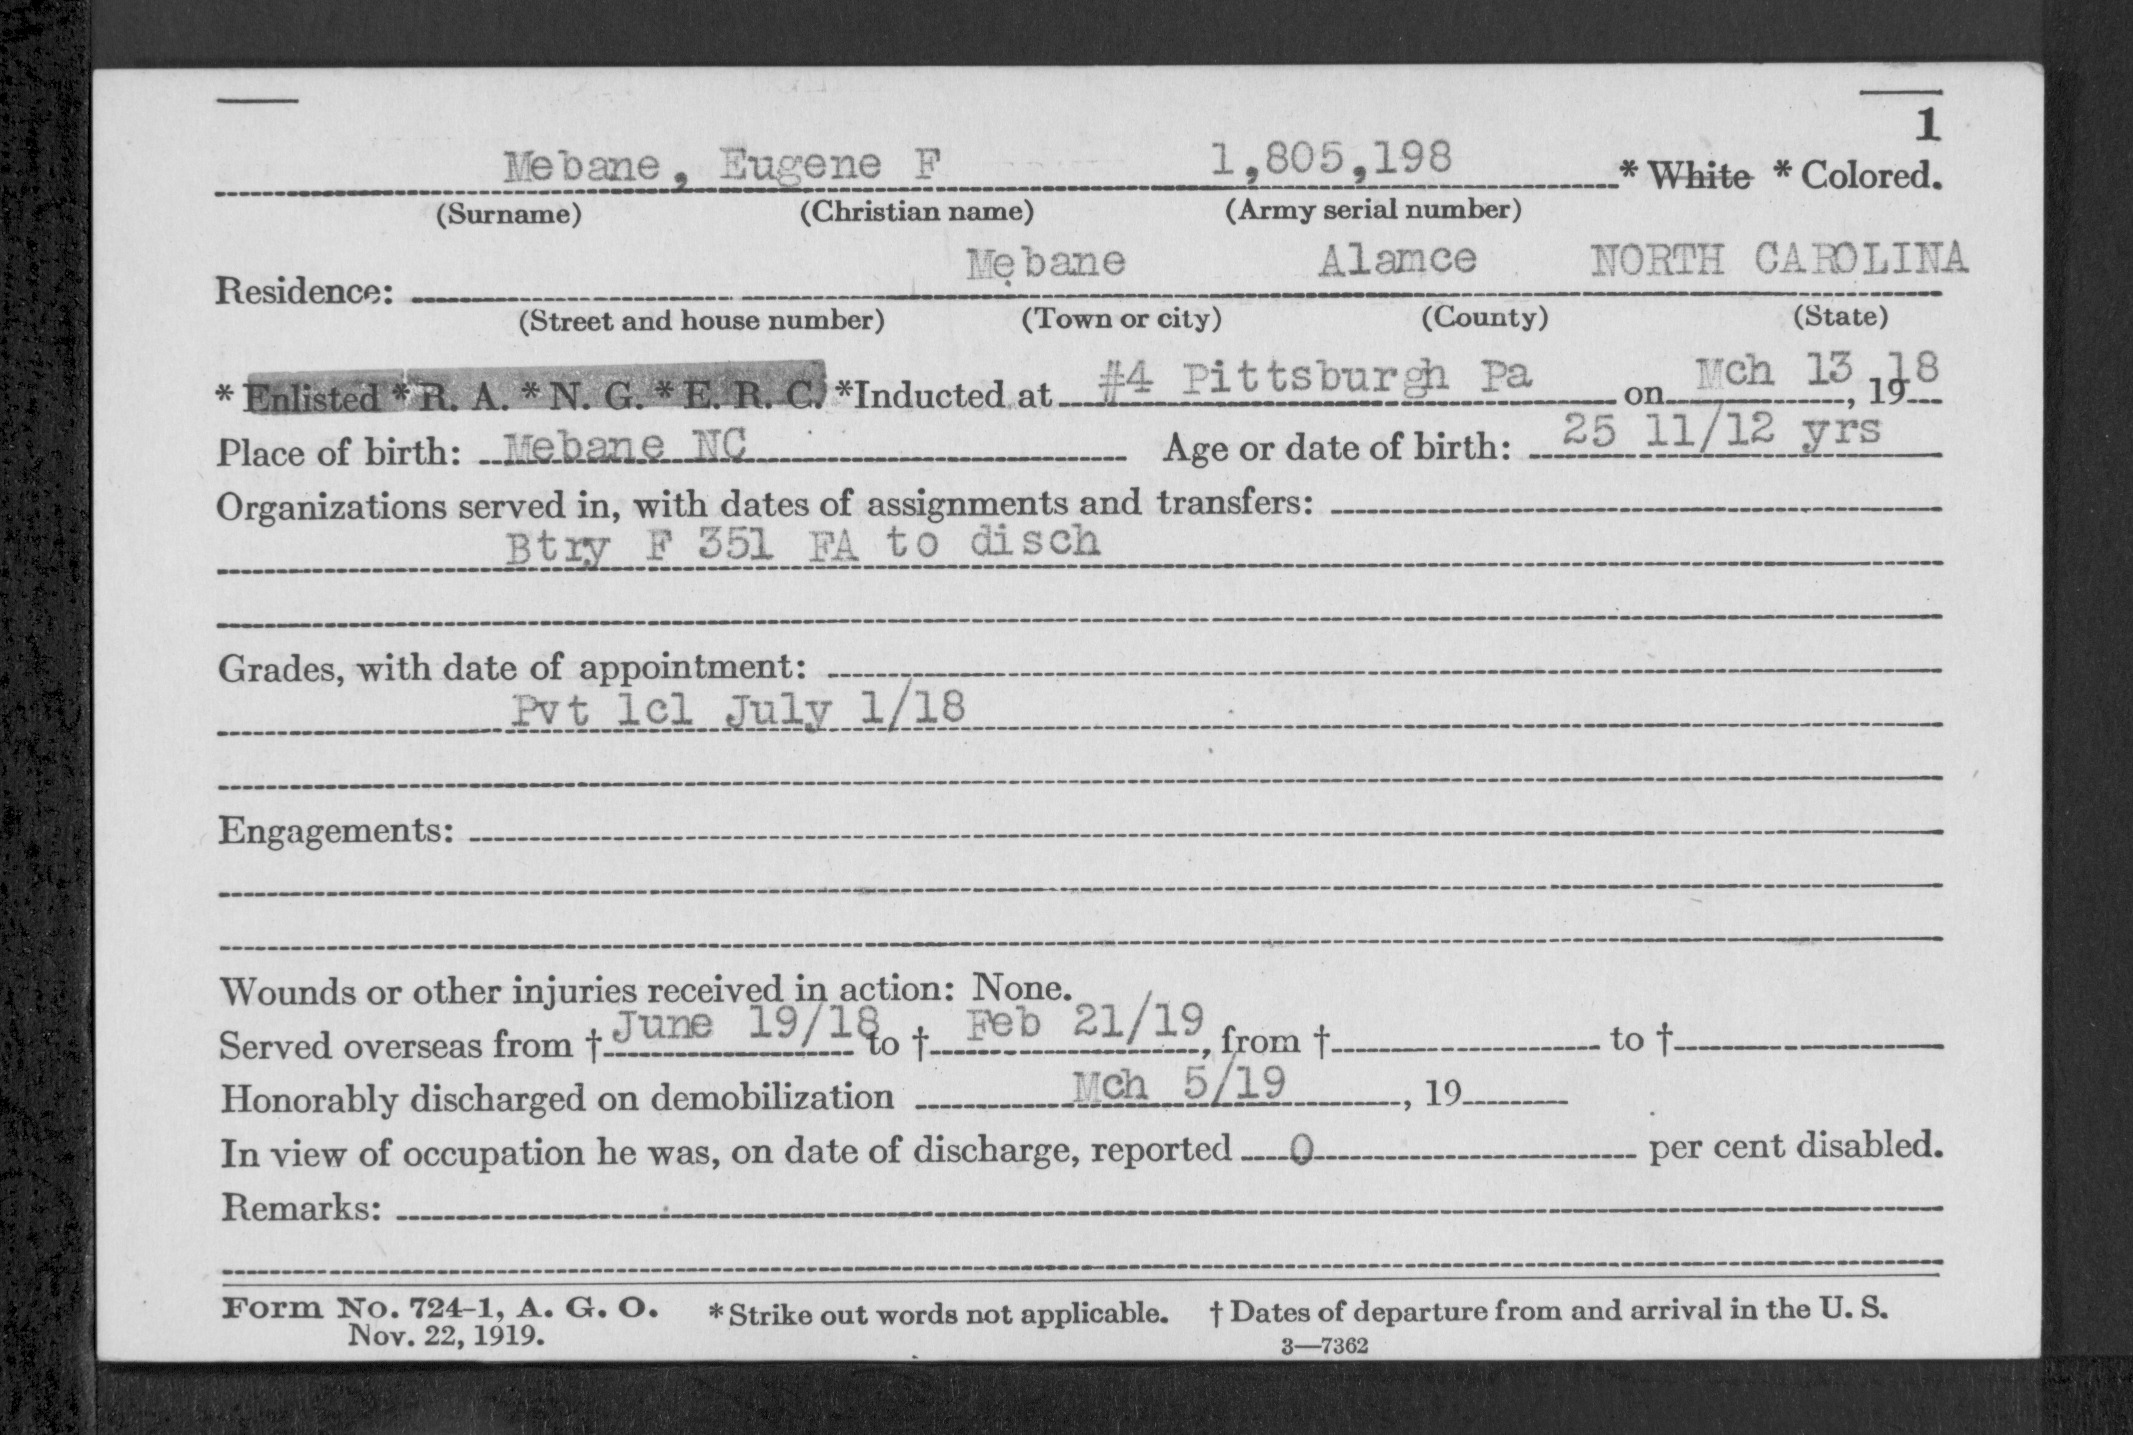 1
Mebane, Eugene F 1,805,198 * White * Colored.
(Surname) (Christian name) (Army serial number)
Mebane Alamce NORTH CAROLINA
Residence:
(Street and house number) (Town or city) (County) (State)
* Enlisted * R. A. * N. G. * E. R. C. *Inducted at #4 Pittsburgh Pa on Mch 13, 1918
Place of birth: Mebane NC Age or date of birth: 25 11/12 yrs
Organizations served in, with dates of assignments and transfers:
Btry F 351 FA to disch
Grades, with date of appointment:
Pvt 1cl July 1/18
Engagements:
Wounds or other injuries received in action: None.
Served overseas from † June 19/18 to † Feb 21/19, from † to †
Honorably discharged on demobilization Mch 5/19, 19
In view of occupation he was, on date of discharge, reported 0 per cent disabled.
Remarks:
Form No. 724-1, A. G. O. * Strike out words not applicable. † Dates of departure from and arrival in the U. S.
Nov. 22, 1919. 3—7362